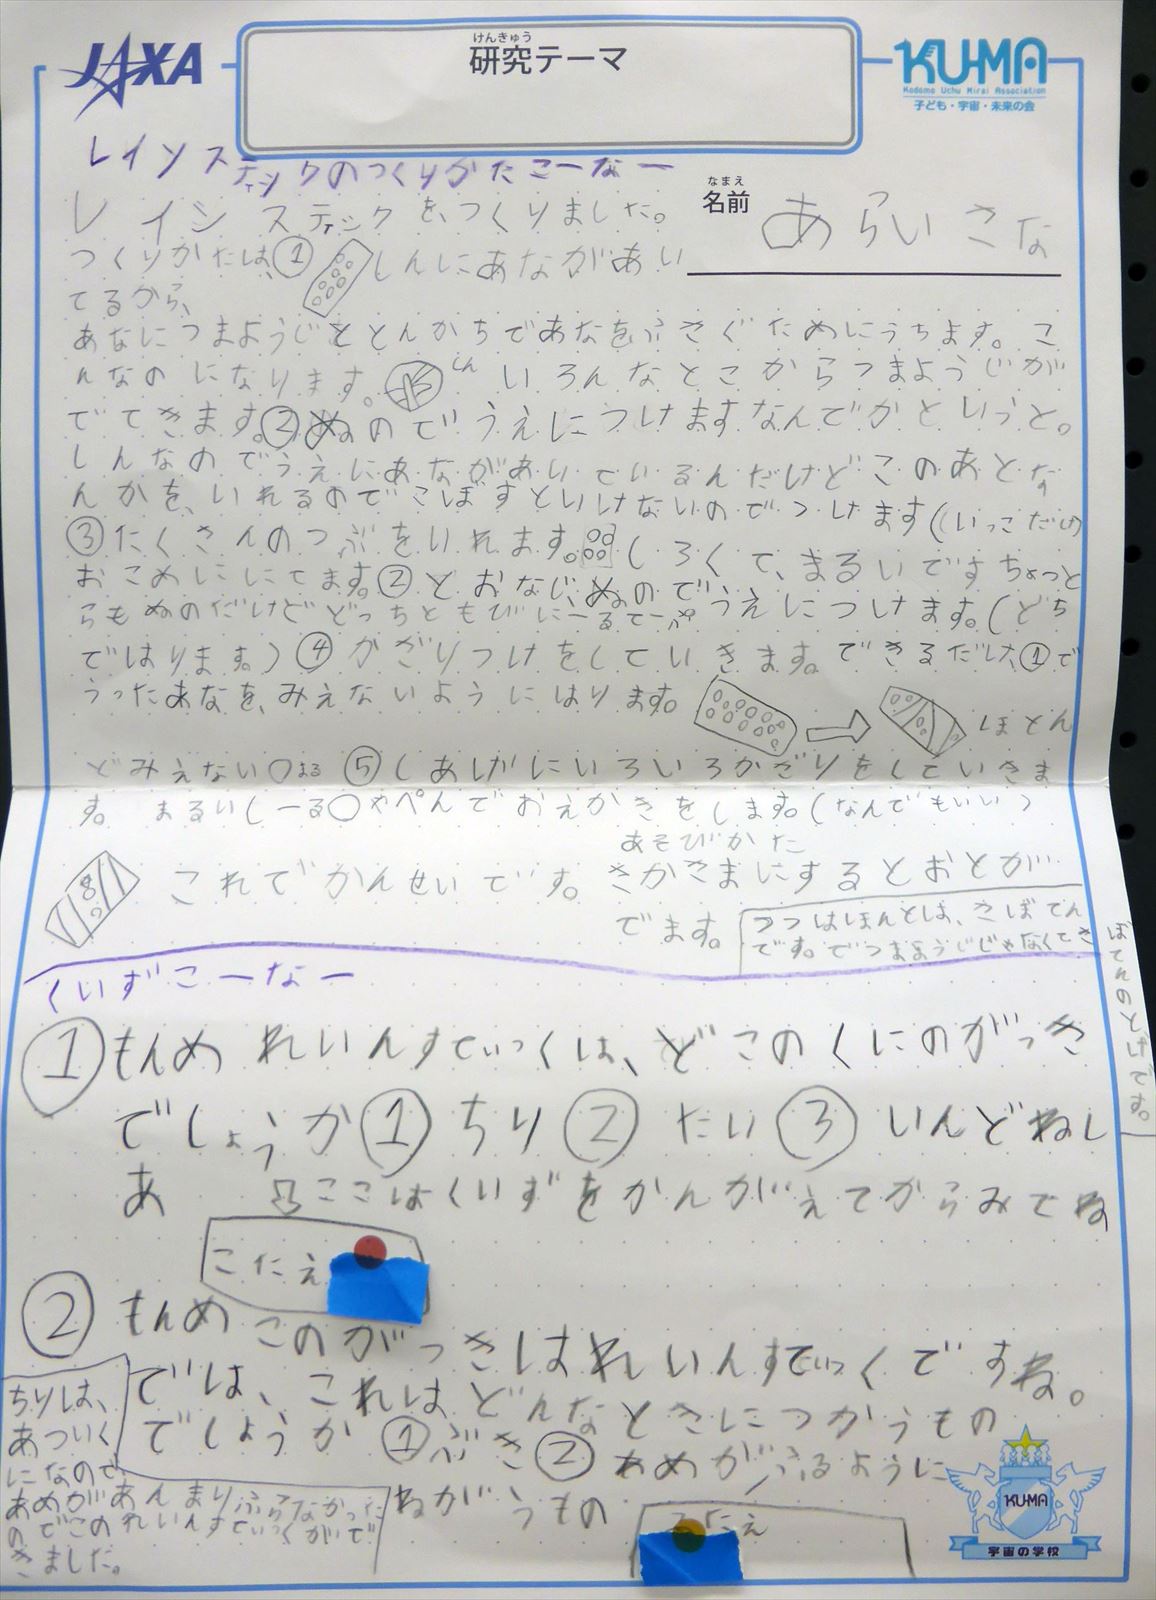 JAXA
けんきゅう
研究テーマ
KU-MA
Kodomo Uchu Mirai Association
子ども・宇宙・未来の会
レインスティックのつくりかたこーなー
なまえ
名前
あらいさな
レインスティックを、つくりました。
つくりかたは、① しんにあながあい
てるから、
あなにつまようじととんかちであなをふさぐためにうちます。こ
んなのになります。 しん いろんなとこからつまようじが
でてきます。②ぬのでうえにつけますなんでかというと。
しんなのでうえにあながあいているんだけどこのあとな
んかを、いれるのでこぼすといけないのでつけます(いっこだけ)
③たくさんのつぶをいれます。(しろくて、まるいですちょっと
おこめににてます。②とおなじぬのでうえにつけます。(どち
らもぬのだけどどっちともびにーるてーぷ
ではります。) ④かざりつけをしていきます。できるだけ、①で
うったあなを、みえないようにはります。
ほとん
どみえない〇まる ⑤しあげにいろいろかざりをしていきま
す。 まるいしーる〇やぺんでおえかきをします。(なんでもいい)
これでかんせいです。
あそびかた
さかさまにするとおとが
でます。
つつはほんとは、さぼてん
です。でつまようじじゃなくてさ
ぼてんのとげです。
くいずこーなー
①もんめ れいんすてぃっくは、どこのくにのがっき
でしょうか①ちり②たい③いんどねし
あ ここはくいずをかんがえてからみてね
こたえ
②もんめ このがっきはれいんすてぃっくですね。
では、これはどんなときにつかうもの
でしょうか ①ぶき②あめがふるように
ねがうもの
こたえ
ちりは、
あついく
になので
あめがあんまりふらなかった
のでこのれいんすてぃっくがで
きました。
KU-MA
宇宙の学校